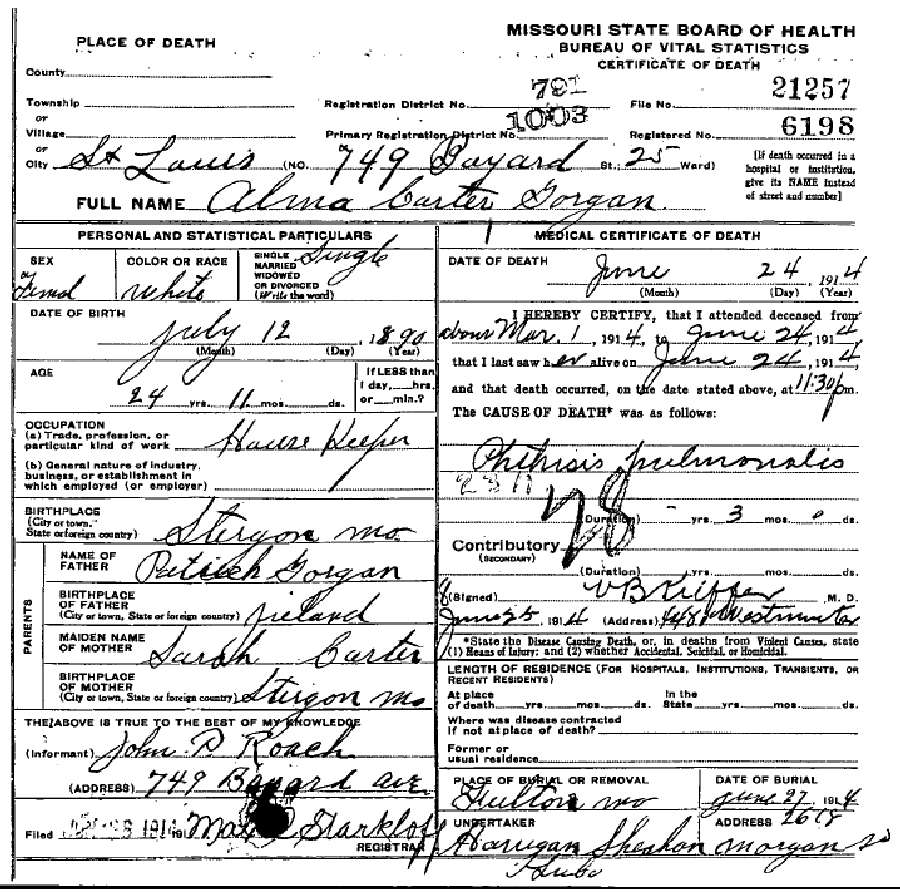 MISSOURI STATE BOARD OF HEALTH
BUREAU OF VITAL STATISTICS
CERTIFICATE OF DEATH
PLACE OF DEATH
County
Township
or
Village
or
City St Louis (NO. 749 Bayard St; 25 Ward)
Registration District No. 791
Primary Registration District No. 1003
File No. 21257
Registered No. 6198
[If death occurred in a
hospital or institution,
give its NAME instead
of street and number]
FULL NAME Alma Carter Gorgan
PERSONAL AND STATISTICAL PARTICULARS
SEX
Femal
COLOR OR RACE
white
SINGLE
MARRIED
WIDOWED
OR DIVORCED
(Write the word)
Single
DATE OF BIRTH
July 12, 1890
(Month) (Day) (Year)
AGE
24 yrs. 11 mos. ds.
If LESS than
1 day, hrs.
or min.?
OCCUPATION
(a) Trade, profession, or
particular kind of work House Keeper
(b) General nature of industry,
business, or establishment in
which employed (or employer)
BIRTHPLACE
(City or town,
State or foreign country) Stergon mo.
PARENTS
NAME OF
FATHER Patrick Gorgan
BIRTHPLACE
OF FATHER
(City or town, State or foreign country) Ireland
MAIDEN NAME
OF MOTHER Sarah Carter
BIRTHPLACE
OF MOTHER
(City or town, State or foreign country) Stergon mo
THE ABOVE IS TRUE TO THE BEST OF MY KNOWLEDGE
(Informant) John D Roach
(ADDRESS) 749 Bayard ave
Filed 1914 191 Max Starkloff
REGISTRAR
MEDICAL CERTIFICATE OF DEATH
DATE OF DEATH June 24, 1914
(Month) (Day) (Year)
I HEREBY CERTIFY, that I attended deceased from
about Mar. 1, 1914, to June 24, 1914
that I last saw her alive on June 24, 1914
and that death occurred, on the date stated above, at 11:30 pm.
The CAUSE OF DEATH* was as follows:
Phthisis pulmonalis
28
(Duration) - yrs. 3 mos. 0 ds.
Contributory
(SECONDARY)
(Duration) yrs. mos. ds.
(Signed) V B Kieffer M. D.
June 25 1914 (Address) Westminster
*State the Disease Causing Death, or, in deaths from Violent Causes, state
(1) Means of Injury; and (2) whether Accidental, Suicidal, or Homicidal.
LENGTH OF RESIDENCE (FOR HOSPITALS, INSTITUTIONS, TRANSIENTS, OR
RECENT RESIDENTS)
At place
of death yrs. mos. ds.
In the
State yrs. mos. ds.
Where was disease contracted
if not at place of death?
Former or
usual residence
PLACE OF BURIAL OR REMOVAL
Fulton mo
DATE OF BURIAL
June 27 1914
UNDERTAKER
Harrigan Sheahan
ADDRESS 2618
morgan